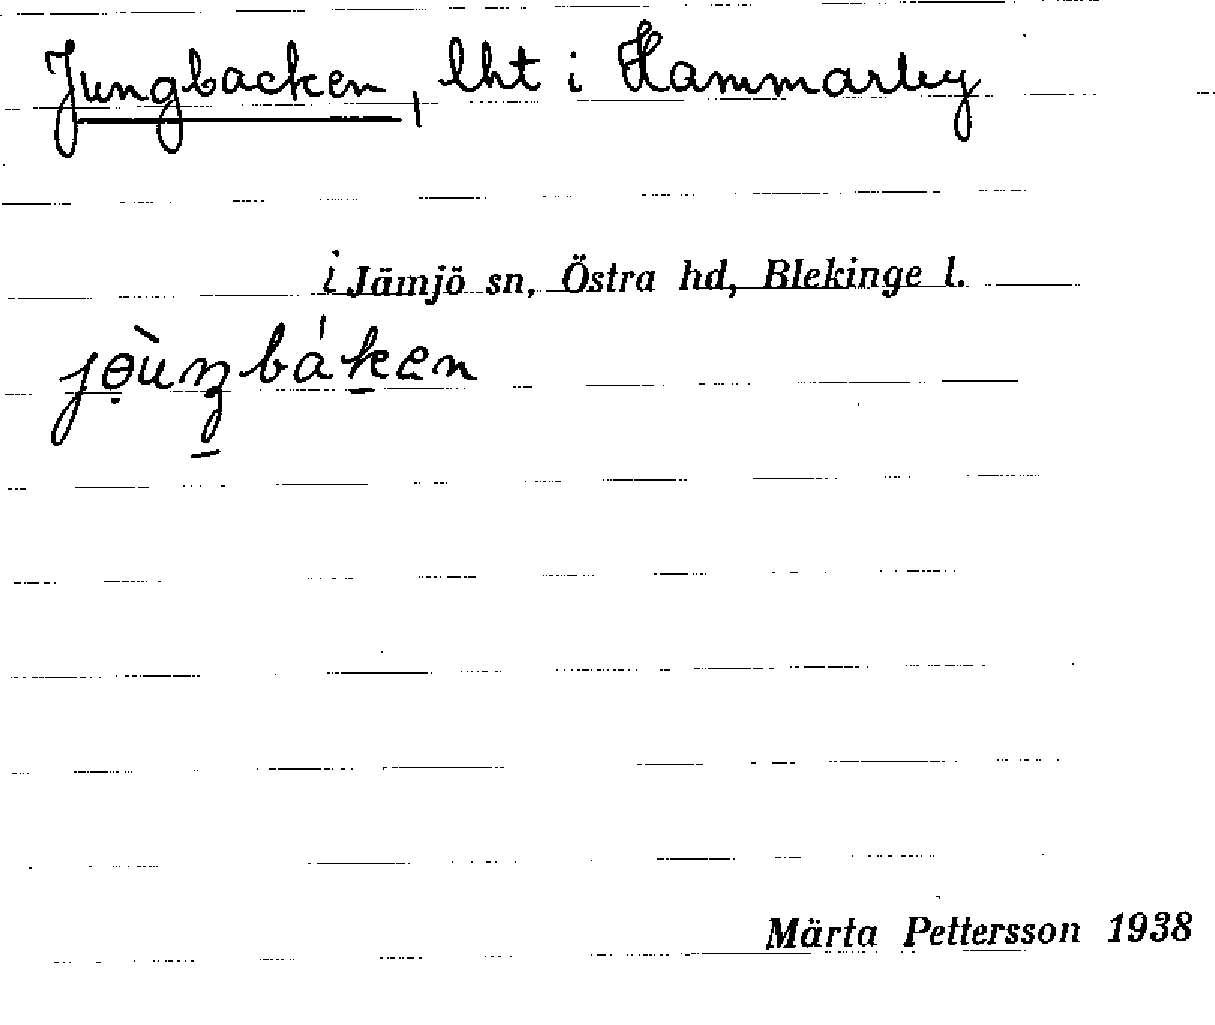 Jungbacken, lht i Hammarby
i Jämjö sn, Östra hd, Blekinge l.
jө̣̀uŋbáken
Märta Pettersson 1938